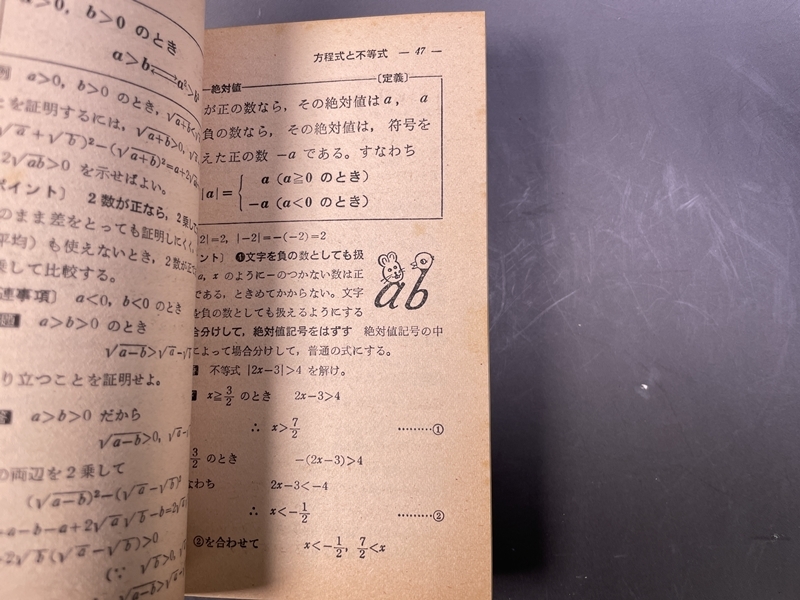 a>0, b>0 のとき
a>b⟺a²>b
例 a>0, b>0 のとき, √a+b<
とを証明するには, √a+b>0,
√a+√b)²−(√a+b)²=a+2√a
2√ab>0 を示せばよい。
ポイント〕 2数が正なら, 2乗して
のまま差をとっても証明しにくく,
平均) も使えないとき, 2数が正
乗して比較する。
連事項〕 a<0, b<0 のとき
題 a>b>0 のとき
√a−b>√a−√
り立つことを証明せよ。
答 a>b>0 だから
√a−b>0, √a−
の両辺を2乗して
(√a−b)²−(√a−√b)²
−a−b−a+2√a√b−b=2√
+2√b(√a−√b)>0
(∵ √b>0,
√a−b>√a−
方程式と不等式 — 47 —
絶対値 〔定義〕
が正の数なら, その絶対値は a, a
負の数なら, その絶対値は, 符号を
えた正の数 −a である。すなわち
|a|={ a (a≧0 のとき)
−a (a<0 のとき)
2|=2, |−2|=−(−2)=2
ント〕 ❶文字を負の数としても扱
a, x のように−のつかない数は正
である, ときめてかからない。文字
を負の数としても扱えるようにする
合分けして, 絶対値記号をはずす 絶対値記号の中
によって場合分けして, 普通の式にする。
ab
不等式 |2x−3|>4 を解け。
x≧3/2 のとき 2x−3>4
∴ x>7/2 ………①
3/2 のとき −(2x−3)>4
なわち 2x−3<−4
∴ x<−1/2 ………②
②を合わせて x<−1/2, 7/2<x